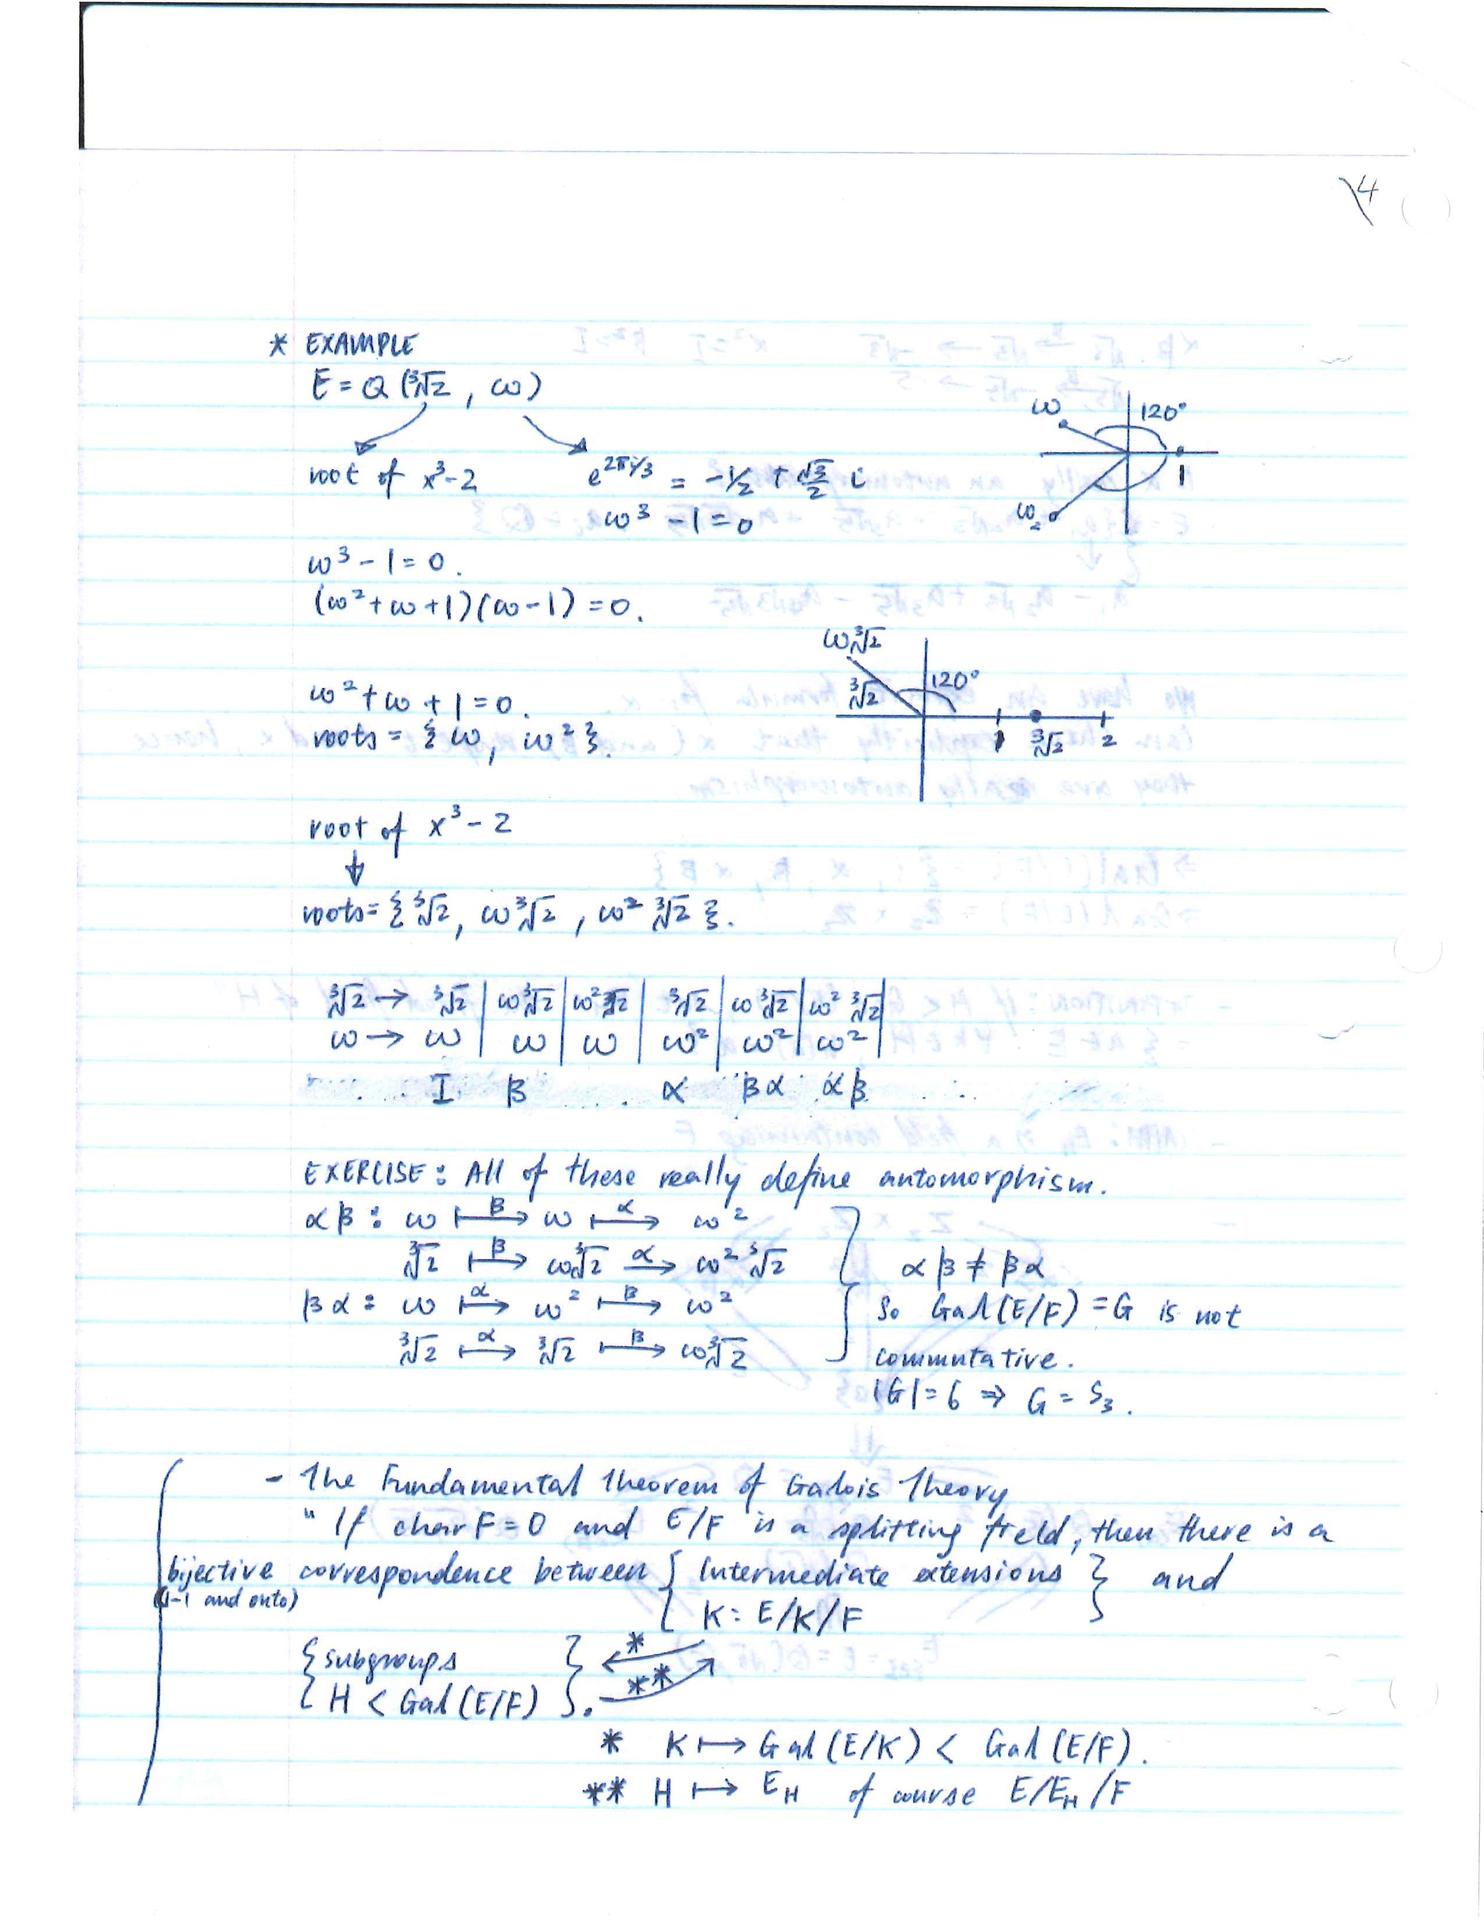 4
* EXAMPLE
E = Q (∛2, ω)
root of x³-2
e^{2πi/3} = -1/2 + √3/2 i
ω³ - 1 = 0
ω 120°
1
ω₂
ω³ - 1 = 0.
(ω² + ω + 1)(ω - 1) = 0.
ω² + ω + 1 = 0.
roots = {ω, ω²}.
ω∛2
∛2 120°
1 ∛2 2
root of x³ - 2
↓
roots = {∛2, ω∛2, ω² ∛2}.
∛2 → ∛2 | ω∛2 | ω²∛2 | ∛2 | ω∛2 | ω² ∛2 |
ω → ω | ω | ω | ω² | ω² | ω² |
I β α βα αβ
EXERCISE: All of these really define automorphism.
αβ: ω ↦^β ω ↦^α ω²
∛2 ↦^β ω∛2 →^α ω² ∛2
βα: ω ↦^α ω² ↦^β ω²
∛2 ↦^α ∛2 ↦^β ω∛2
αβ ≠ βα
So Gal(E/F) = G is not
commutative.
|G| = 6 ⇒ G = S₃.
- The Fundamental Theorem of Galois Theory
" If char F = 0 and E/F is a splitting field, then there is a
bijective correspondence between { Intermediate extensions } and
(1-1 and onto) K: E/K/F
{ subgroups } *
H < Gal(E/F) . **
* K ↦ Gal(E/K) < Gal(E/F).
** H ↦ E_H of course E/E_H/F